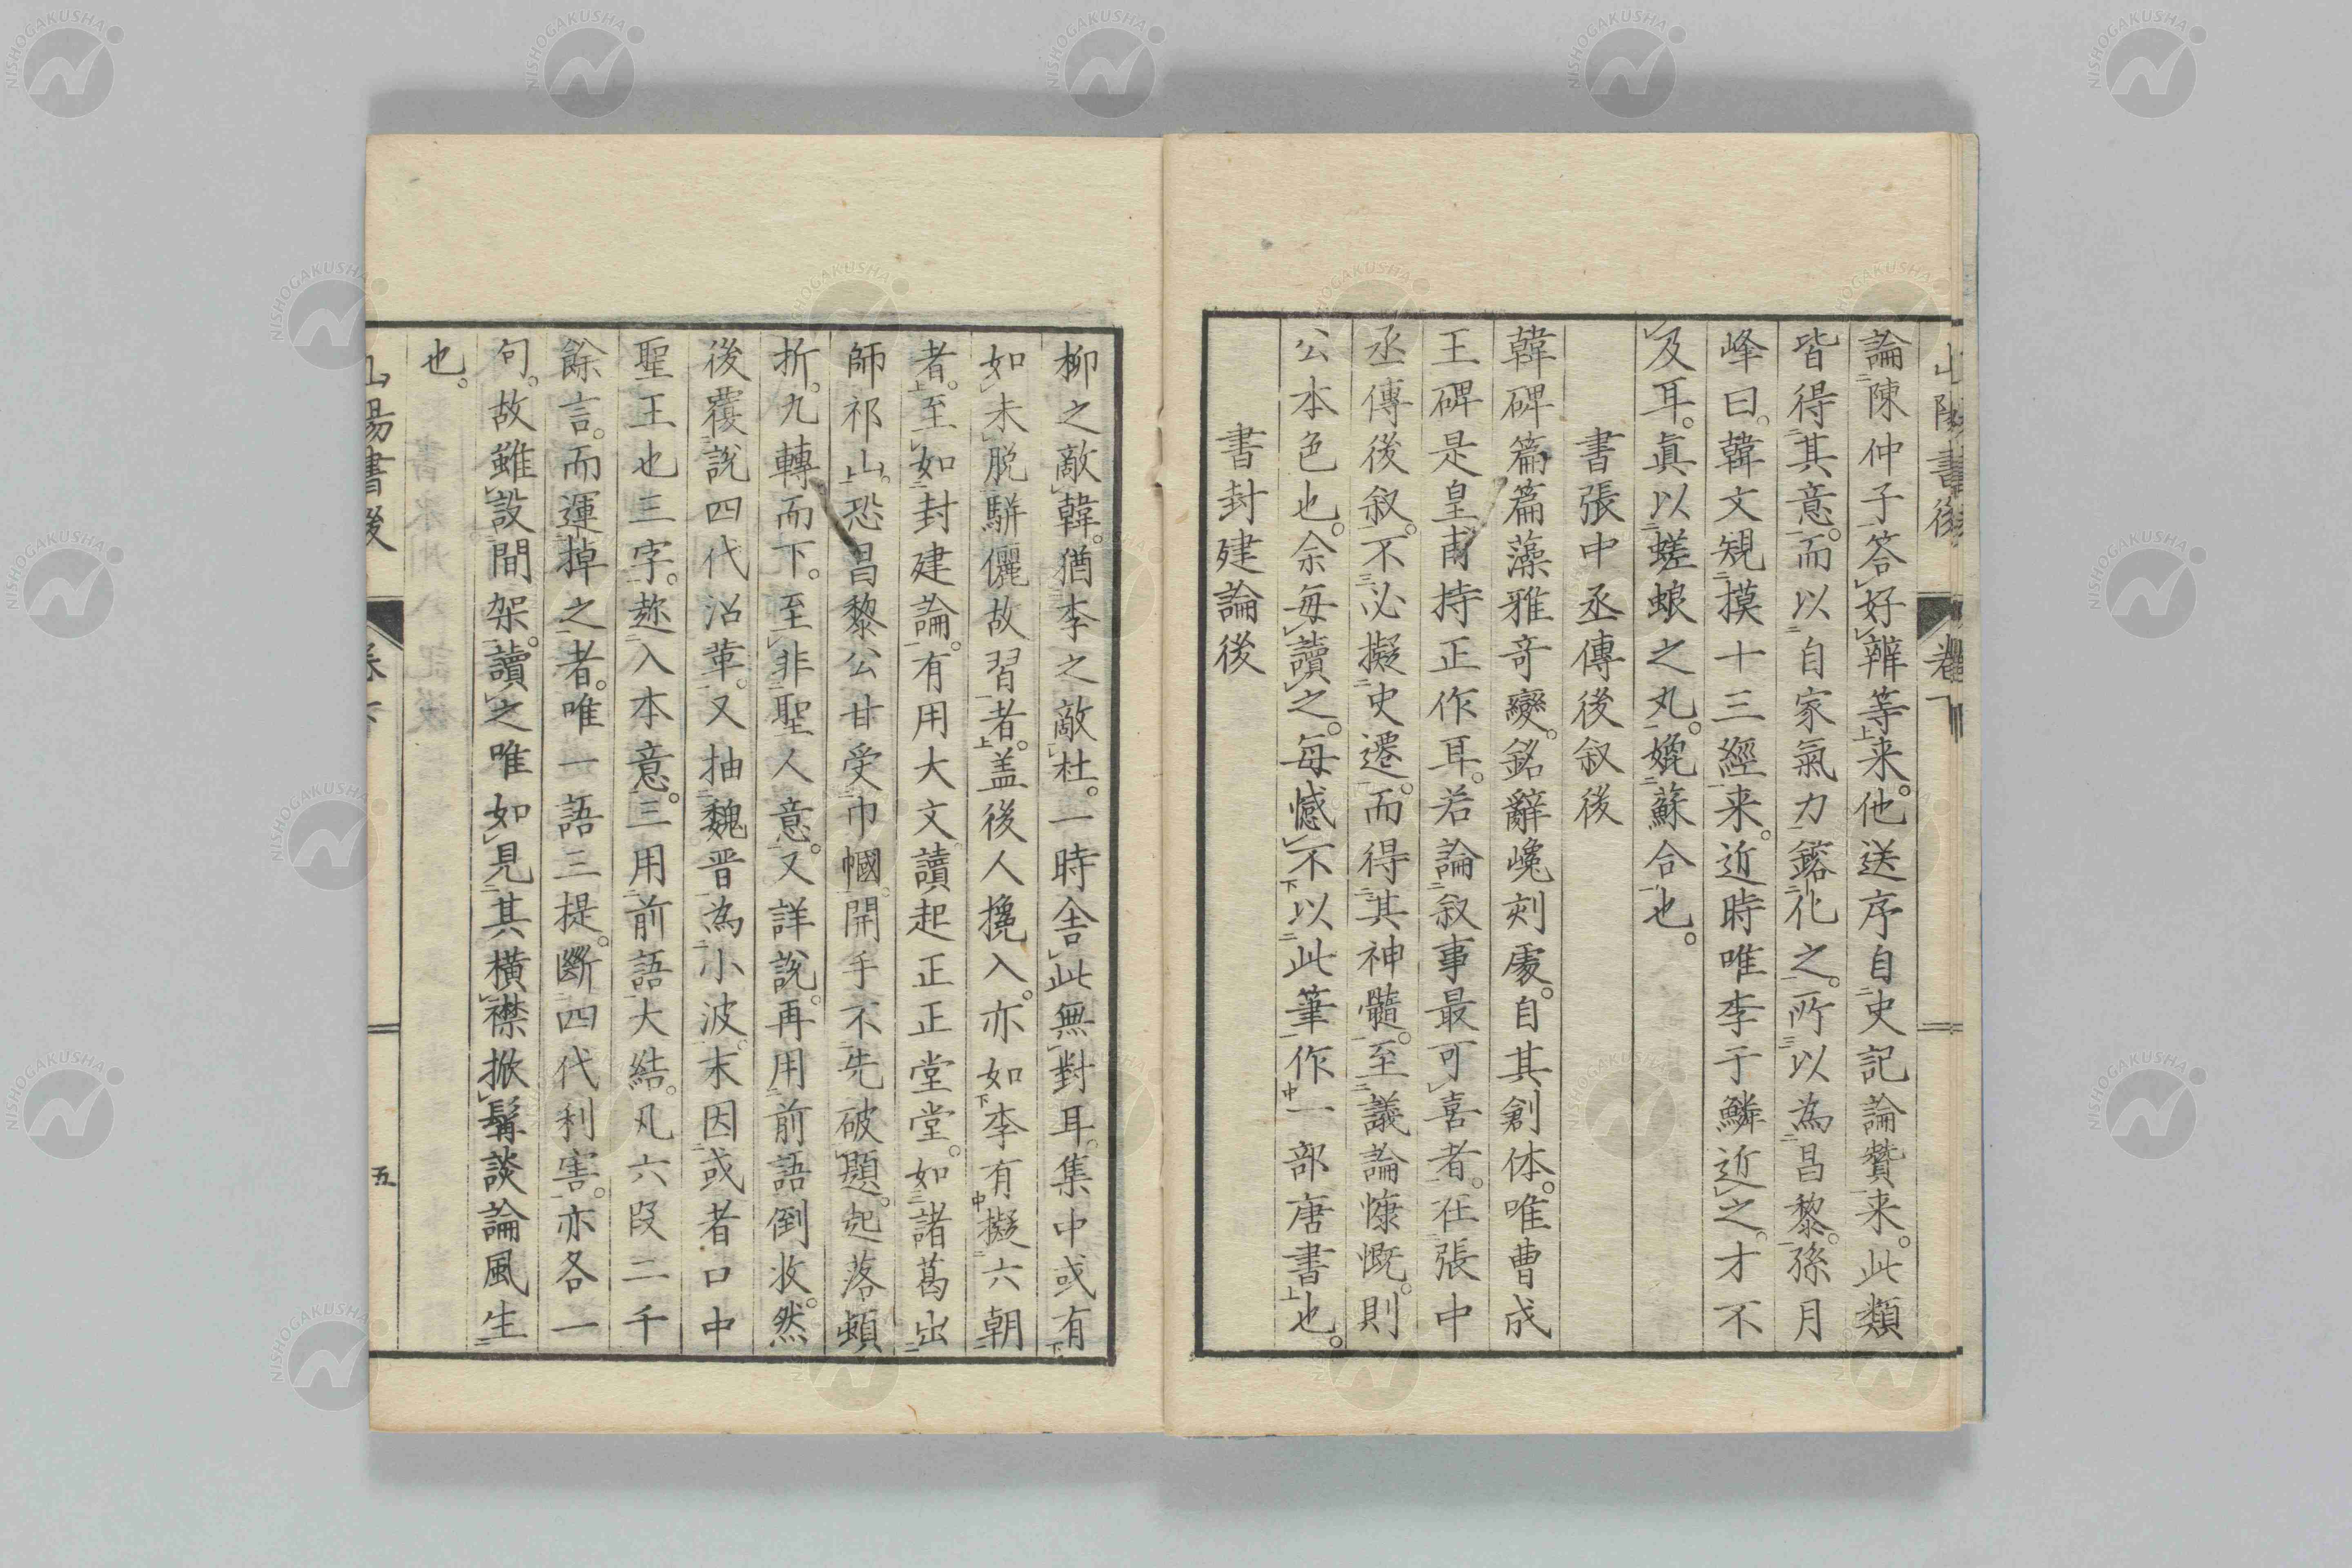 論陳仲子答好辨等来。他送序自史記論贊来。此類
皆得其意。而以自家氣力鎔化之。所以為昌黎。孫月
峰曰。韓文規摸十三經来。近時唯李于鱗近之。才不
及耳。眞以蜣蜋之丸。媲蘇合也。
書張中丞傳後叙後
韓碑篇篇藻雅奇變。銘辭巉刻處。自其創体。唯曹成
王碑是皇甫持正作耳。若論叙事最可喜者。在張中
丞傳後叙。不必擬史遷。而得其神髓。至議論慷慨。則
公本色也。余每讀之。每憾不以此筆作一部唐書也。
書封建論後
柳之敵韓。猶李之敵杜。一時舎此無對耳。集中或有
如未脱駢儷故習者。盖後人攙入。亦如李有擬六朝
者。至如封建論。有用大文。讀起正正堂堂。如諸葛出
師祁山。恐昌黎公甘受巾幗。開手不先破題。起落頓
折。九轉而下。至非聖人意。又詳説。再用前語倒收。然
後覆説四代沿革。又抽魏晋為小波。末因或者口中
聖王也三字。趂入本意。三用前語大結。凡六段二千
餘言。而運掉之者。唯一語三提。斷四代利害。亦各一
句。故雖設間架。讀之唯如見其橫襟掀髯談論風生
也。
山陽書後
五